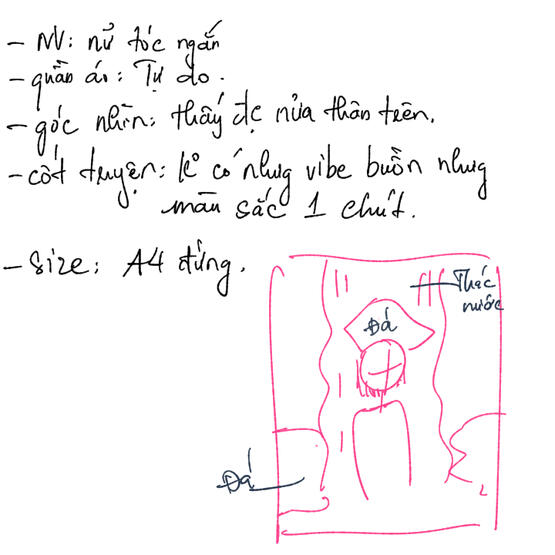 - NV: nữ tóc ngắn
- quần áo: Tự do.
- góc nhìn: thấy đc nửa thân trên.
- cốt truyện: k có nhưg vibe buồn nhưg
màu sắc 1 chút.
- Size: A4 đứng.
Thác
nước
Đá
Đá